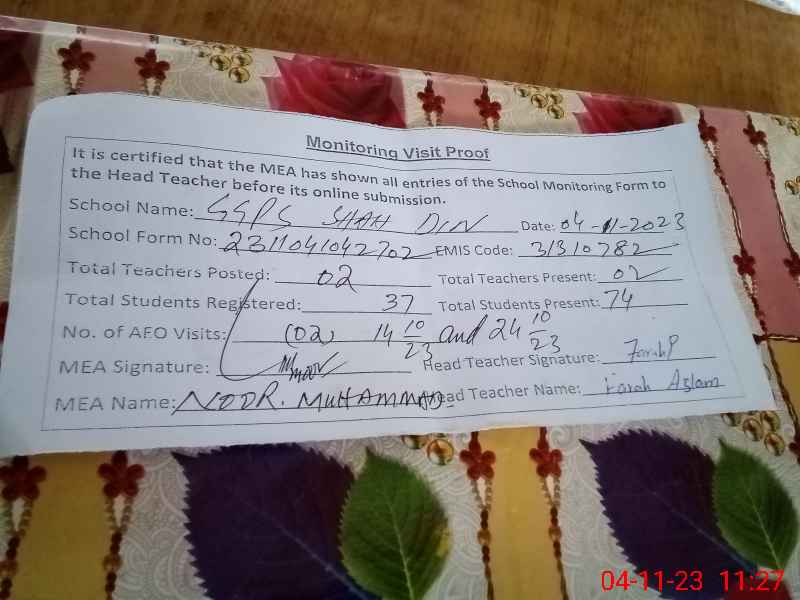 Monitoring Visit Proof
It is certified that the MEA has shown all entries of the School Monitoring Form to
the Head Teacher before its online submission.
School Name: GGPS SHAH DIN Date: 04-11-2023
School Form No: 2311041042702 EMIS Code: 31310782
Total Teachers Posted: 02 Total Teachers Present: 02
Total Students Registered: 37 Total Students Present: 74
No. of AEO Visits: (02) 14 10/23 and 24 10/23
MEA Signature: Head Teacher Signature: Farah
MEA Name: NOOR. MUHAMMAD Head Teacher Name: Farah Aslam
04-11-23 11:27